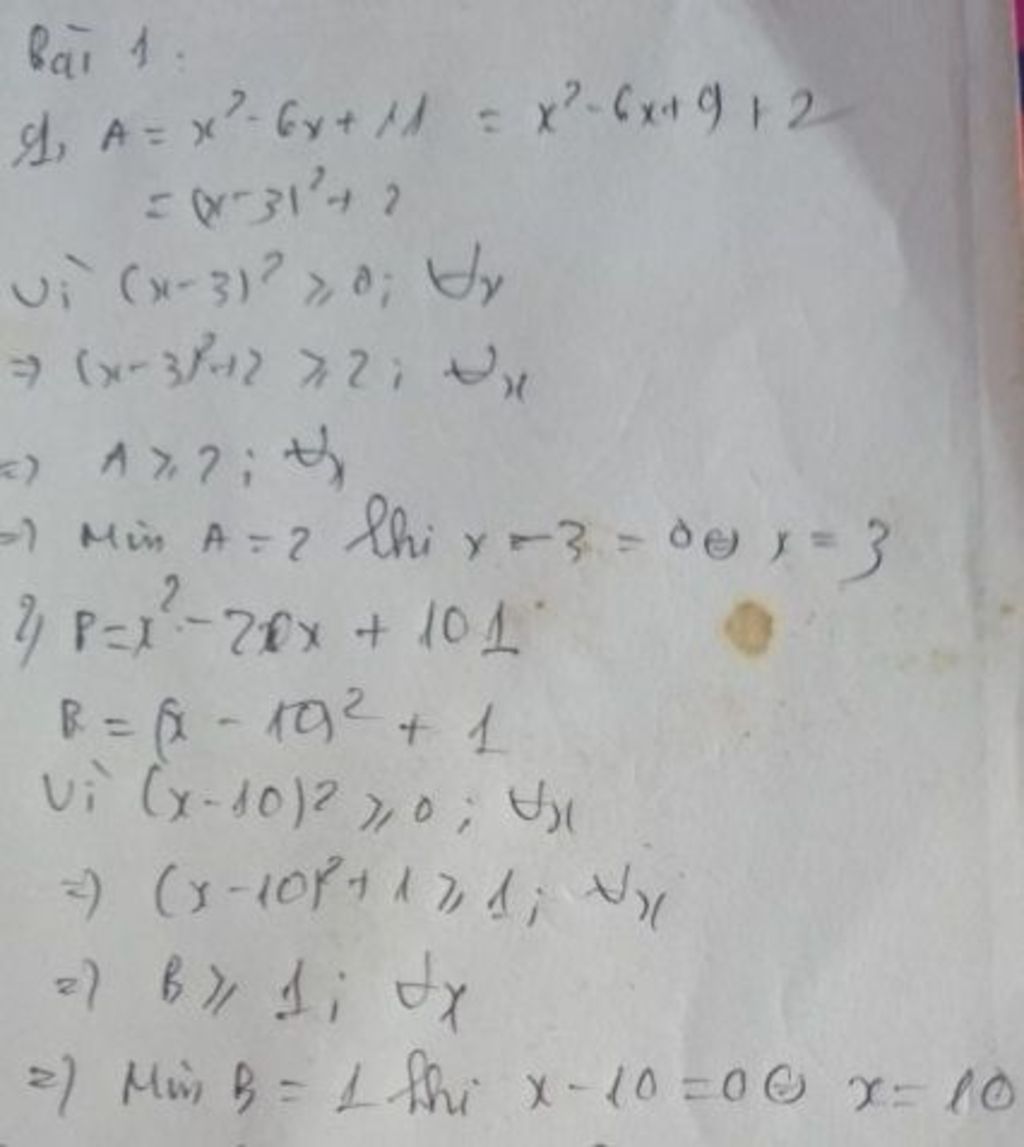 Bài 1:
1, A = x² - 6x + 11 = x² - 6x + 9 + 2
= (x - 3)² + 2
Vì (x - 3)² ≥ 0; ∀x
⇒ (x - 3)² + 2 ≥ 2; ∀x
⇒ A ≥ 2; ∀x
⇒ Min A = 2 khi x - 3 = 0 ⇔ x = 3
2, B = x² - 20x + 101
B = (x - 10)² + 1
Vì (x - 10)² ≥ 0; ∀x
⇒ (x - 10)² + 1 ≥ 1; ∀x
⇒ B ≥ 1; ∀x
⇒ Min B = 1 khi x - 10 = 0 ⇔ x = 10